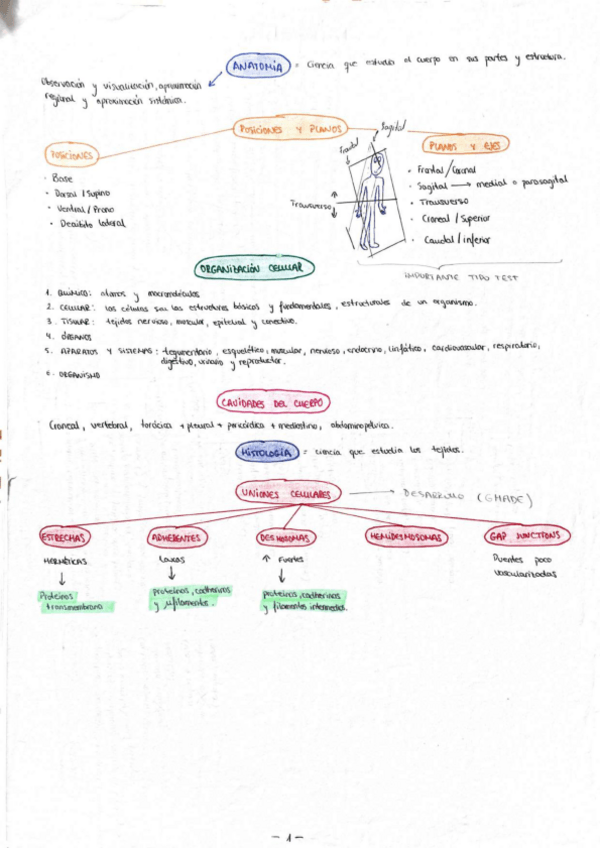 ANATOMÍA = Ciencia que estudia el cuerpo en sus partes y estructura.
Observación y visualización, aproximación
regional y aproximación sistémica.
POSICIONES Y PLANOS
POSICIONES
· Base
· Dorsal / Supino
· Ventral / Prono
· Decúbito lateral
Frontal
Sagital
Transverso
PLANOS Y EJES
· Frontal / Coronal
· Sagital → medial o parasagital
· Transverso
· Craneal / Superior
· Caudal / inferior
IMPORTANTE TIPO TEST
ORGANIZACIÓN CELULAR
1. QUÍMICO: átomos y macromoléculas
2. CELULAR: las células son las estructuras básicas y fundamentales, estructurales de un organismo.
3. TISULAR: tejidos nervioso, muscular, epitelial y conectivo.
4. ÓRGANOS
5. APARATOS Y SISTEMAS: tegumentario, esquelético, muscular, nervioso, endocrino, linfático, cardiovascular, respiratorio,
digestivo, urinario y reproductor.
6. ORGANISMO
CAVIDADES DEL CUERPO
Craneal, vertebral, torácica + pleural + pericárdica + mediastino, abdominopélvica.
HISTOLOGÍA = ciencia que estudia los tejidos.
UNIONES CELULARES → DESARROLLO (GHADE)
ESTRECHAS
HERMÉTICAS
Proteínas
transmembrana
ADHERENTES
Laxas
proteínas, cadherinas
y µfilamentos.
DESMOSOMAS
↑ Fuertes
proteínas, cadherinas
y filamentos intermedios.
HEMIDESMOSOMAS
GAP JUNCTIONS
Puentes poco
vascularizadas
- 1 -